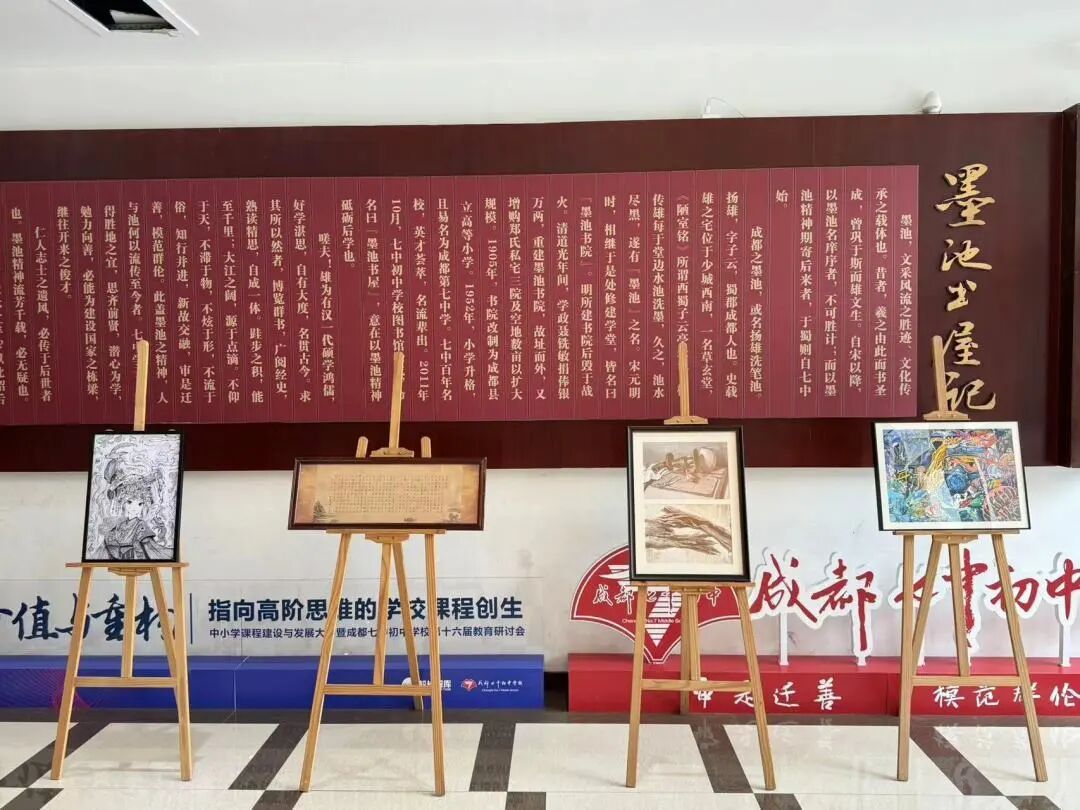 墨池书屋记
墨池，文采风流之胜迹，文化传
承之载体也。昔者，羲之由此而书圣
成，曾巩于斯而雄文生。自宋以降，
以墨池名庠序者，不可胜计；而以墨
池精神期寄后来者，于蜀则自七中
始。
成都之墨池，或名扬雄洗笔池。
扬雄，字子云，蜀郡成都人也。史载
雄之宅位于少城西南，一名草玄堂，
《陋室铭》所谓西蜀子云亭
传雄每于堂边水池洗墨，久之，池水
尽黑，遂有『墨池』之名。宋元明
时，相继于是处修建学堂，皆名曰
『墨池书院』。明所建书院后毁于战
火。清道光年间，学政聂铣敏捐俸银
万两，重建墨池书院，故址而外，又
增购郑氏私宅三院及空地数亩以扩大
规模。1905年，书院改制为成都县
立高等小学。1952年，小学升格，
且易名为成都第七中学。七中百年名
校，英才荟萃，名流辈出。2011年
10月，七中初中学校图书馆
名曰『墨池书屋』，意在以墨池精神
砥砺后学也。
嗟夫，雄为有汉一代硕学鸿儒，
好学湛思，自有大度，名贯古今。求
其所以然者，博览群书，广阅经史，
熟读精思，自成一体。跬步之积，能
至千里；大江之阔，源于点滴。不仰
于天，不滞于物，不炫于形，不流于
俗，知行并进，新故交融，审是迁
善，模范群伦。此盖墨池之精神，人
与池何以流传至今者，七中学
得胜地之宜，思齐前贤，潜心为学，
勉力向善，必能为建设国家之栋梁，
继往开来之俊才。
仁人志士之遗风，必传于后世者
也。墨池精神流芳千载，必无疑也。
价值与重构
指向高阶思维的学校课程创生
中小学课程建设与发展大会暨成都七中初中学校第十六届教育研讨会
成都七中初中学校
成都七中初中
成都七中初中
审是迁善
模范群伦